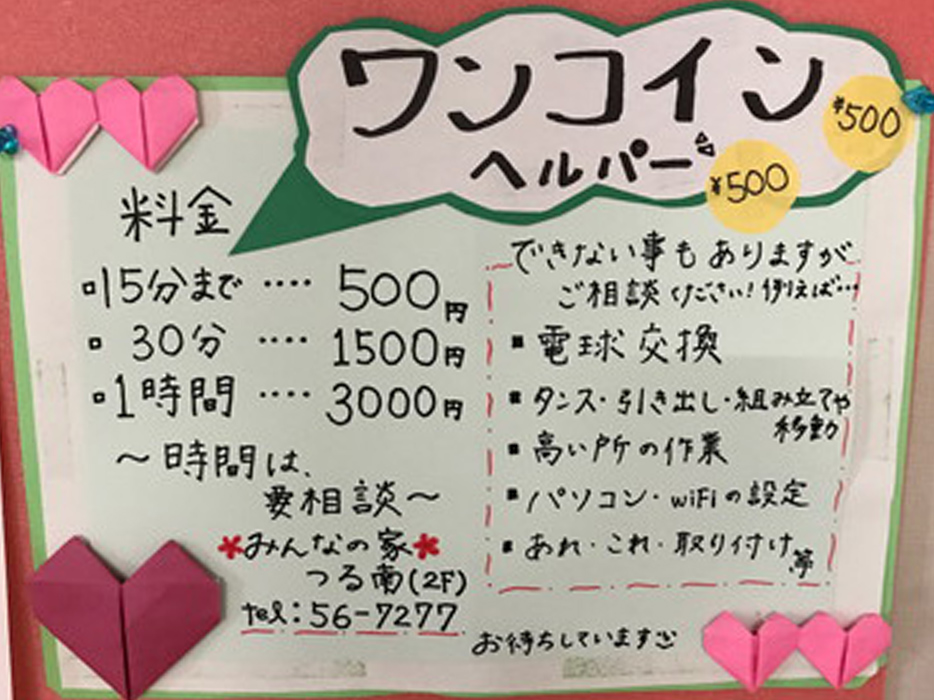 ワンコイン
ヘルパー
¥500
¥500
料金
15分まで‥‥500円
30分‥‥1500円
1時間‥‥3000円
～時間は、
要相談～
みんなの家
つる南(2F)
tel:56-7277
できない事もありますが
ご相談ください!例えば…
電球交換
タンス・引き出し・組み立てや
移動
高い所の作業
パソコン・wiFiの設定
あれ・これ・取り付け等
お待ちしています